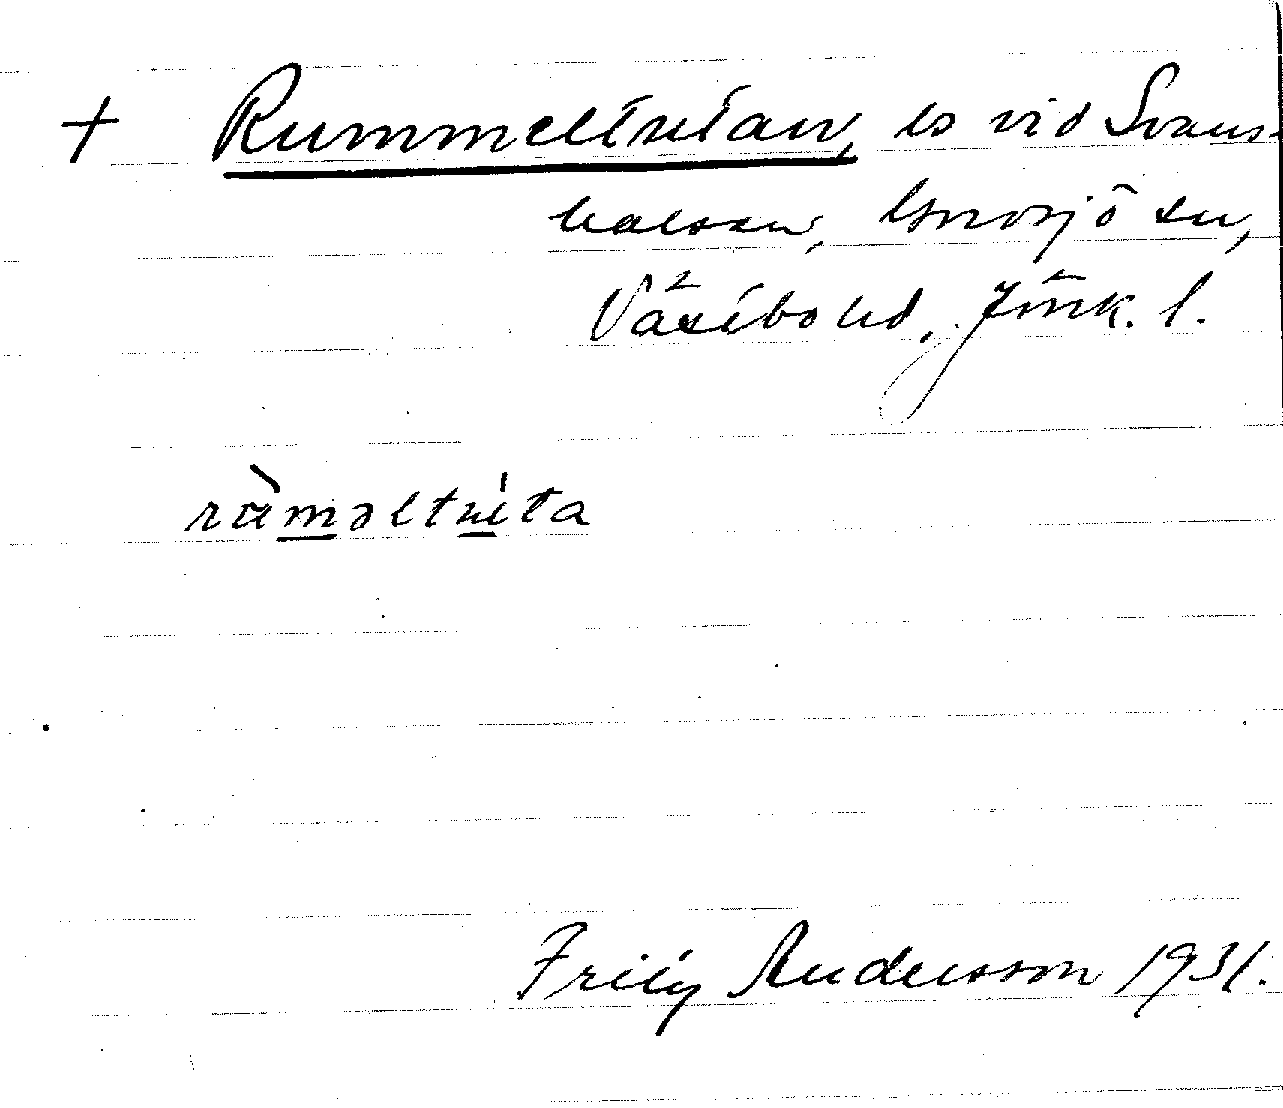 + Rummeltutan, ls vid Svans-
halsen, Gnosjö sn,
Västbo hd, Jönk. l.
ràməltuta
Frity Andersson 1931.